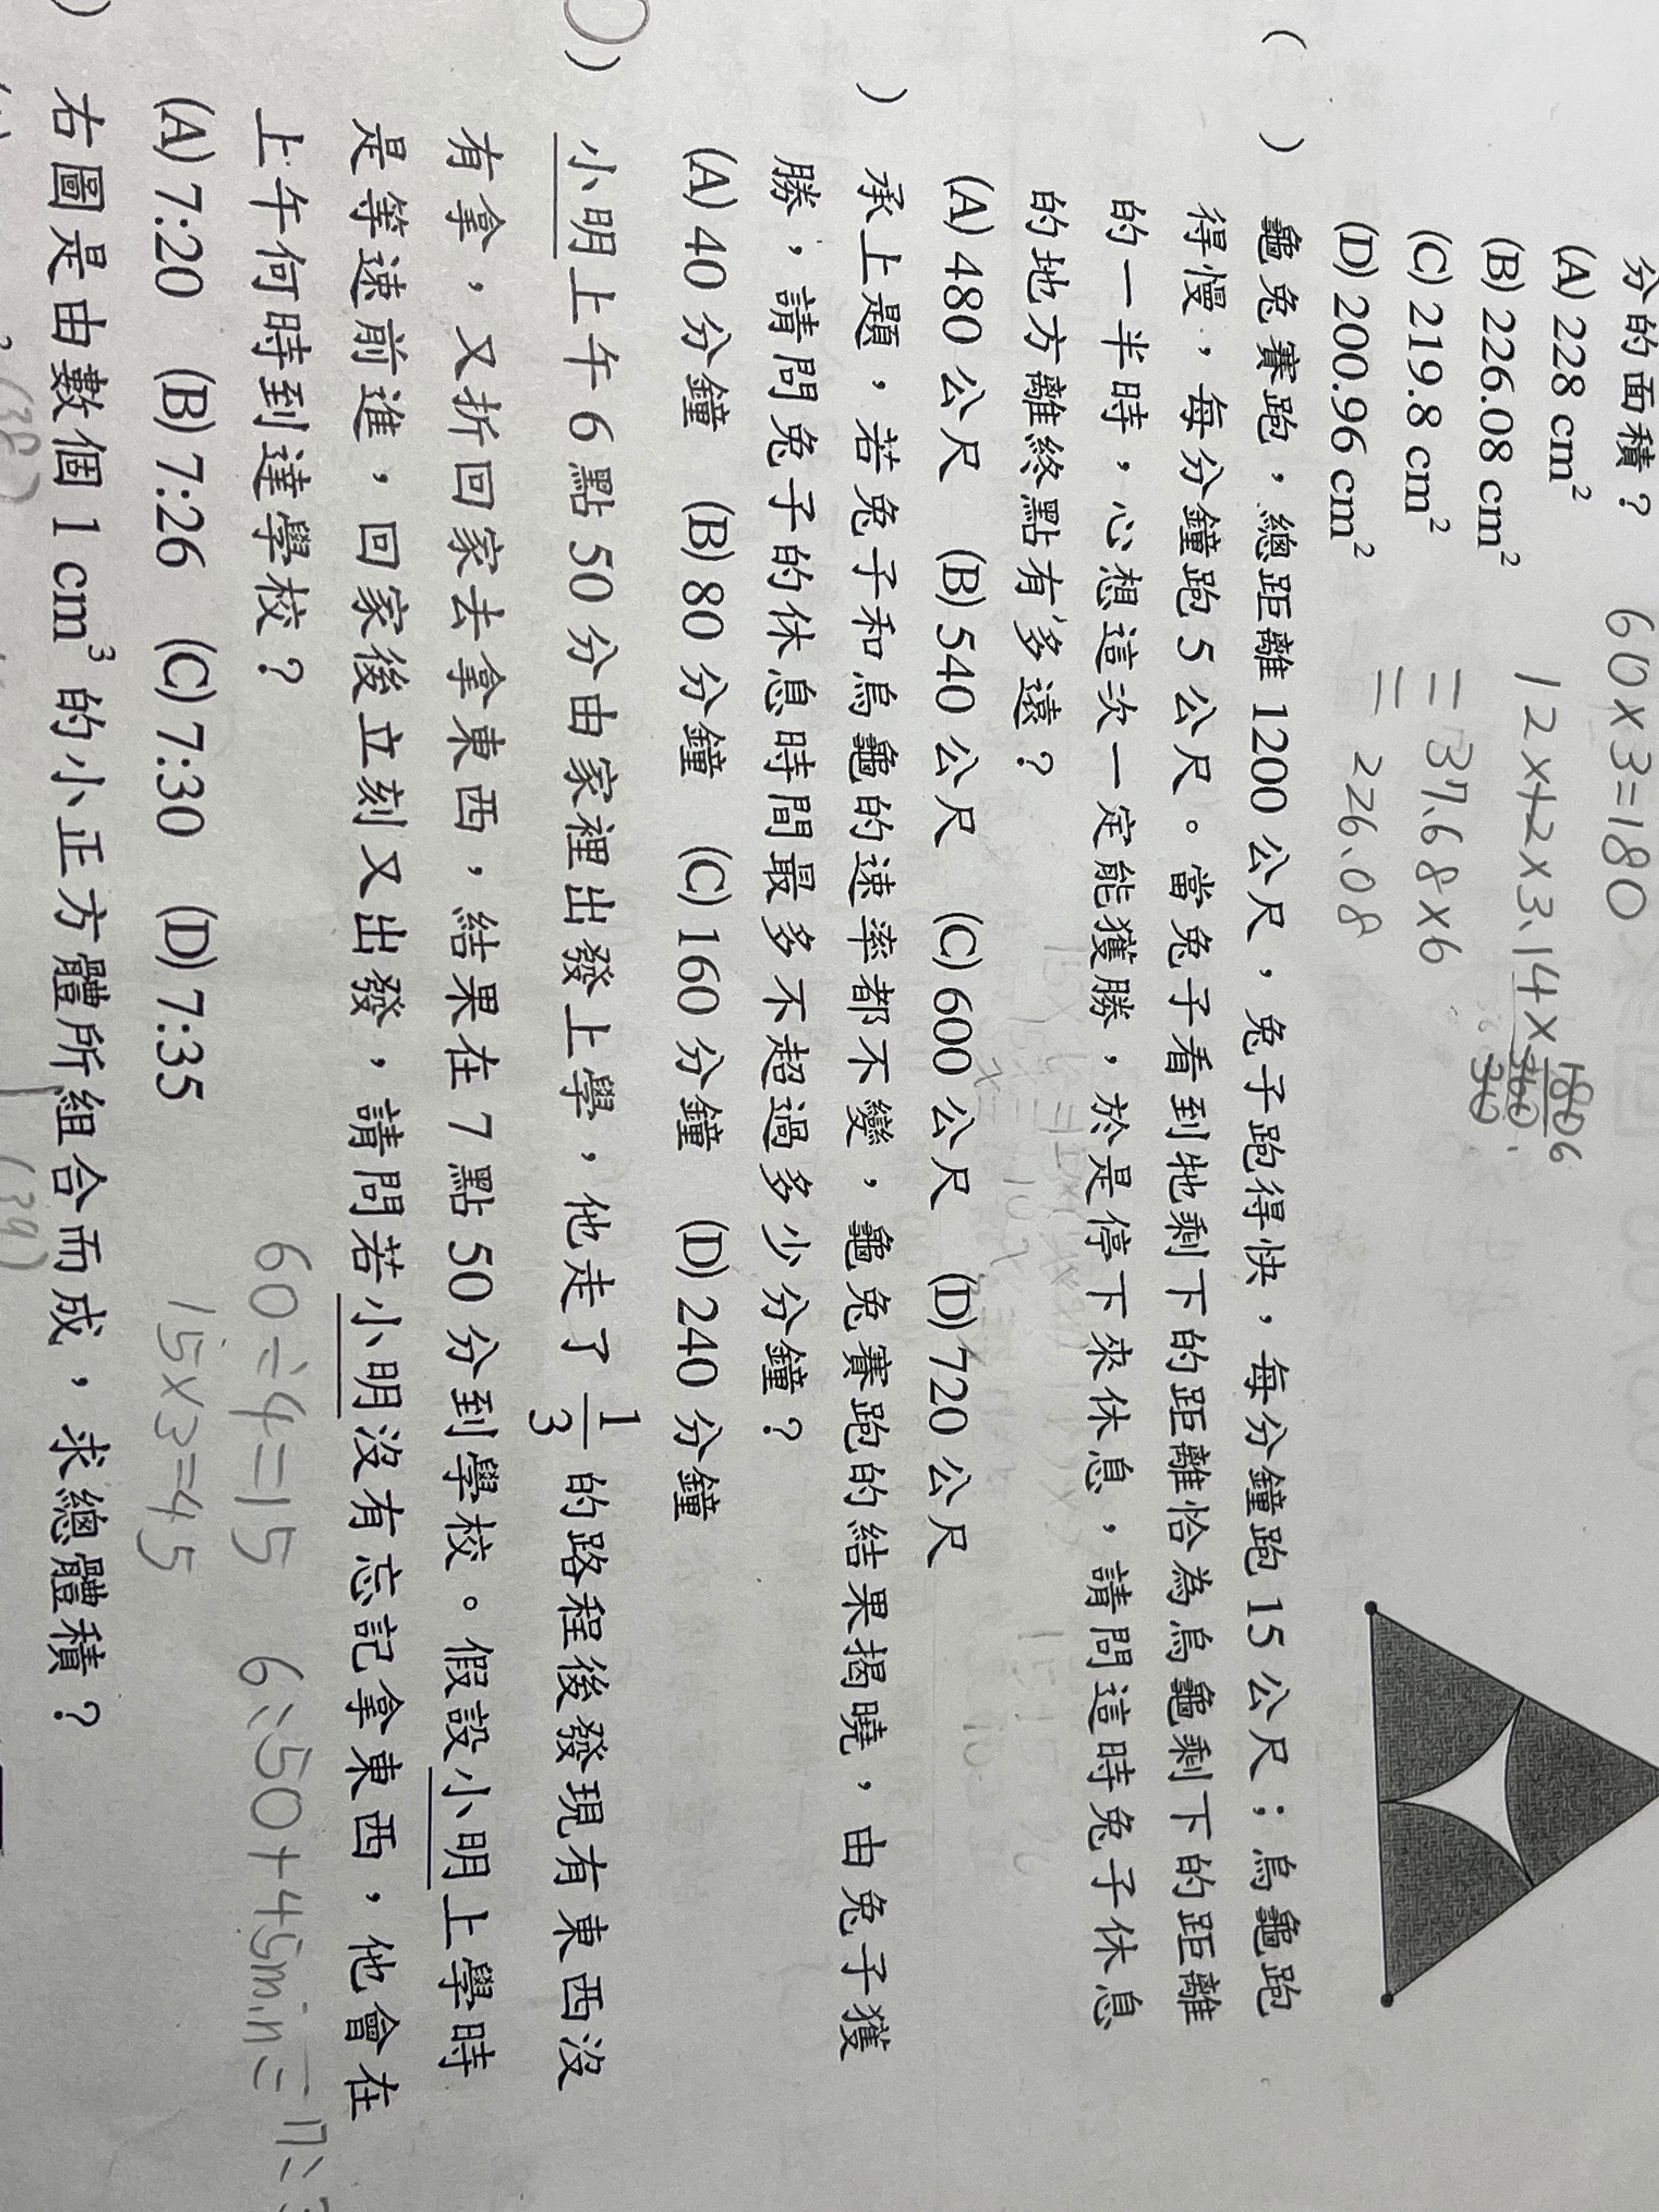 分的面積？
60×3=180
(A) 228 cm²
(B) 226.08 cm²
(C) 219.8 cm²
(D) 200.96 cm²
12×12×3.14×
=37.68×6
=226.08
(　) 龜兔賽跑，總距離 1200 公尺，兔子跑得快，每分鐘跑 15 公尺；烏龜跑
得慢，每分鐘跑 5 公尺。當兔子看到牠剩下的距離恰為烏龜剩下的距離
的一半時，心想這次一定能獲勝，於是停下來休息，請問這時兔子休息
的地方離終點有多遠？
(A) 480 公尺　(B) 540 公尺　(C) 600 公尺　(D) 720 公尺
) 承上題，若兔子和烏龜的速率都不變，龜兔賽跑的結果揭曉，由兔子獲
勝，請問兔子的休息時間最多不超過多少分鐘？
(A) 40 分鐘　(B) 80 分鐘　(C) 160 分鐘　(D) 240 分鐘
) 小明上午 6 點 50 分由家裡出發上學，他走了 1/3 的路程後發現有東西沒
有拿，又折回家去拿東西，結果在 7 點 50 分到學校。假設小明上學時
是等速前進，回家後立刻又出發，請問若小明沒有忘記拿東西，他會在
上午何時到達學校？
60÷4=15
6:50+45min=7:3
(A) 7:20　(B) 7:26　(C) 7:30　(D) 7:35
15×3=45
) 右圖是由數個 1 cm³ 的小正方體所組合而成，求總體積？
(38)
(39)